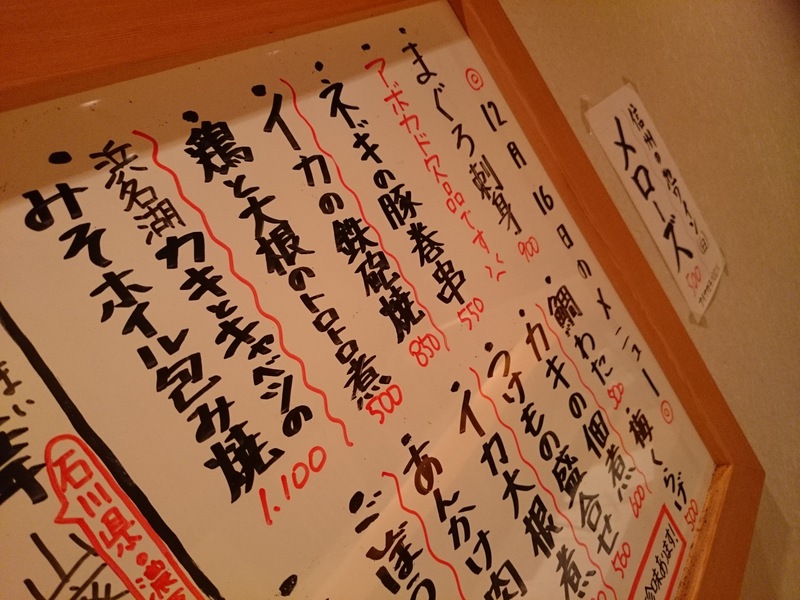 ◎12月16日のメニュー◎
・まぐろ刺身 900
・アボカド欠品です
・ネギの豚巻串 550
・イカの鉄砲焼 850
・鶏と大根のトロトロ煮 500
浜名湖カキとキャベツの
・みそホイル包み焼 1.100
梅くらげ 500
・鯛わた 500
・カキの佃煮 600
・つけもの盛合せ 500
・イカ大根煮
・あんかけ肉
ごぼう
石川県の
信州の
メローズ
500